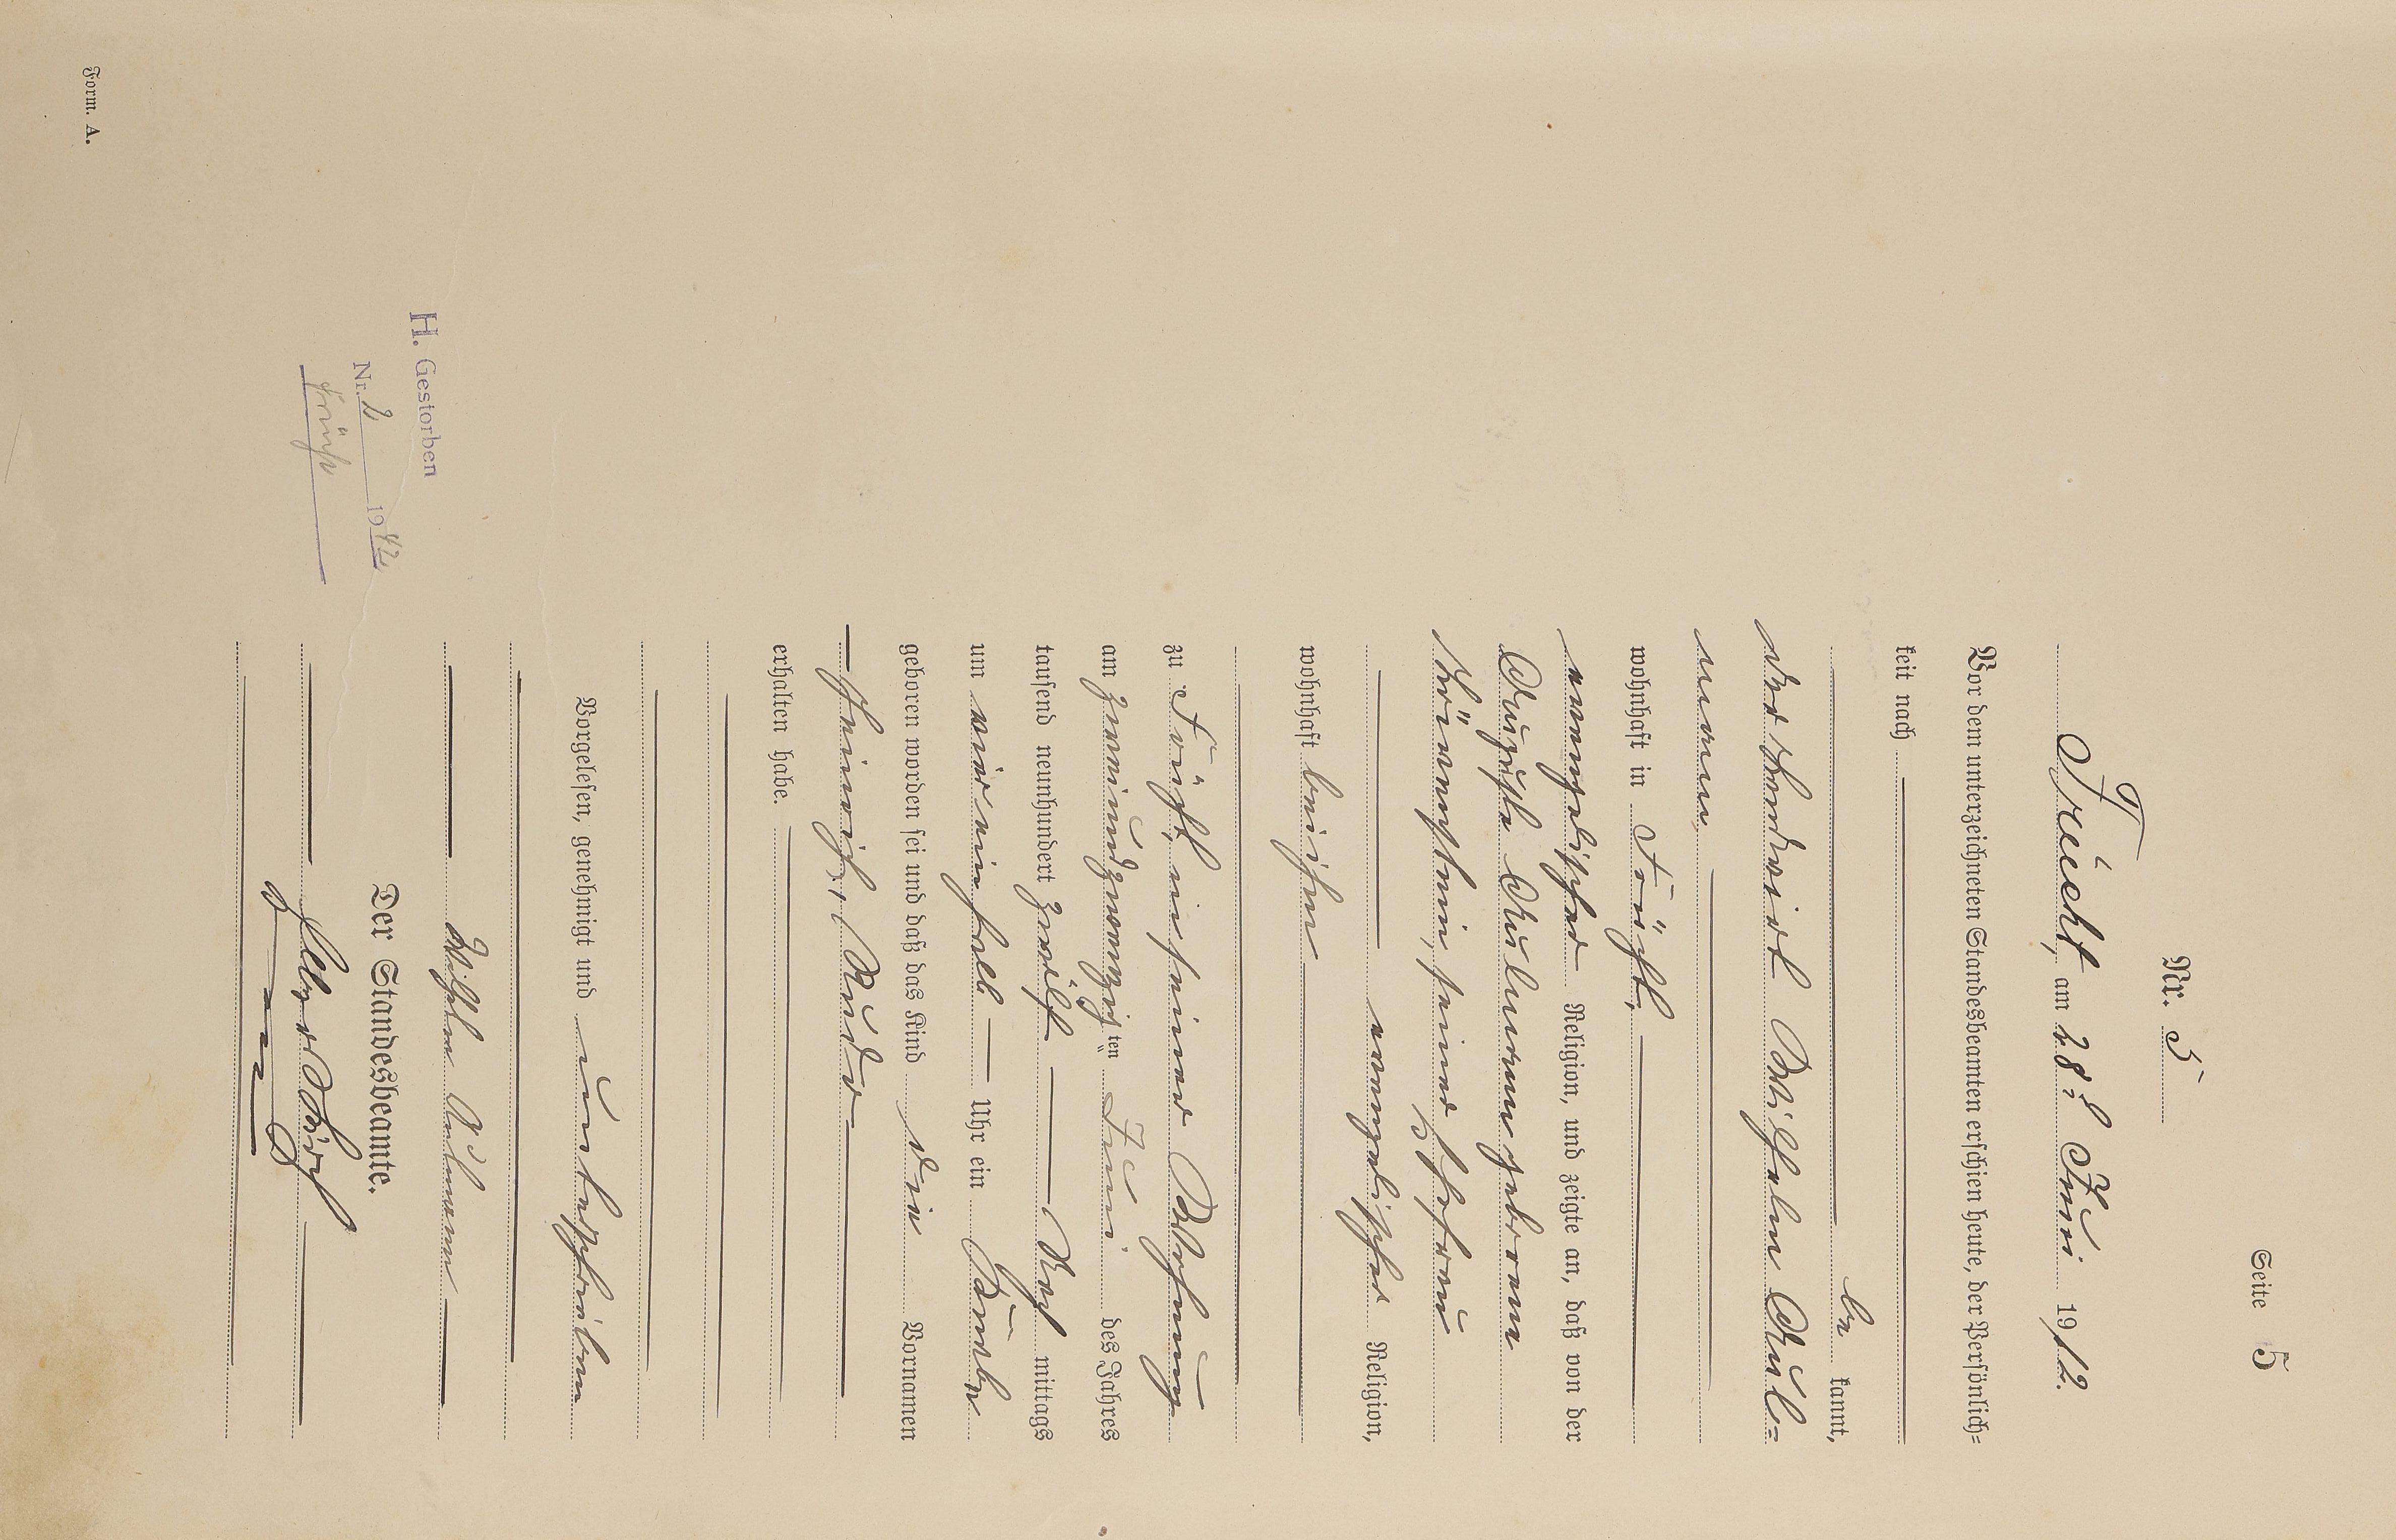 Seite 5
Nr. 5
Frücht, am 28. Juni 1912.
Vor dem unterzeichneten Standesbeamten erschien heute, der Persönlich=
keit nach
be kannt,
der Landwirt Wilhelm
wohnhaft in Frücht,
evangelischer Religion, und zeigte an, daß von der
Auguste geborene
seiner Ehefrau
evangelischer Religion,
wohnhaft bei ihm
zu Frücht, in seiner Wohnung
am zweiundzwanzigsten Juni des Jahres
tausend neunhundert zwölf Nach mittags
um vier einhalb Uhr ein Knabe
geboren worden sei und daß das Kind die Vornamen
Heinrich,
erhalten habe.
Vorgelesen, genehmigt und unterschrieben
Wilhelm
Der Standesbeamte.
H. Gestorben
Nr. 2 1942
Frücht
Form. A.